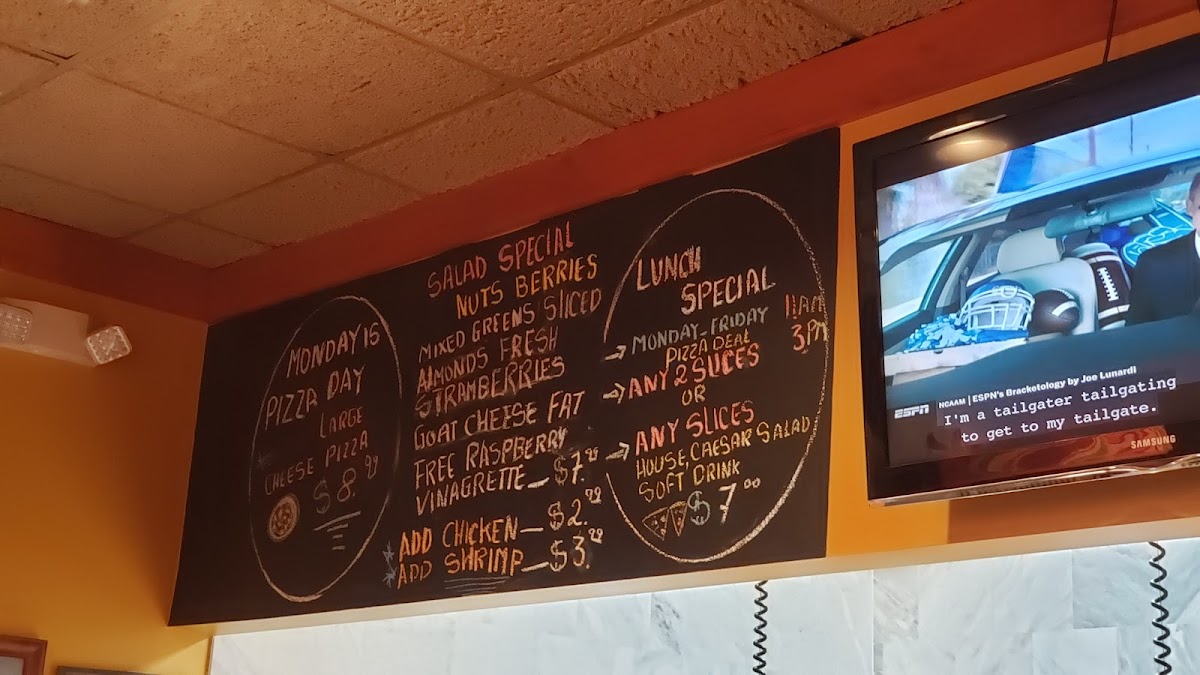 MONDAY IS
PIZZA DAY
LARGE
CHEESE PIZZA
$8.99
SALAD SPECIAL
NUTS BERRIES
MIXED GREENS SLICED
ALMONDS FRESH
STRAMBERRIES
GOAT CHEESE FAT
FREE RASPBERRY
VINAGRETTE_ $7.99
ADD CHICKEN_ $2.99
ADD SHRIMP_ $3.99
LUNCH
SPECIAL
MONDAY-FRIDAY
11AM
3PM
PIZZA DEAL
ANY 2 SLICES
OR
ANY SLICES
HOUSE, CAESAR SALAD
SOFT DRINK
$7.00
ESPN
NCAAM | ESPN's Bracketology by Joe Lunardi
I'm a tailgater tailgating
to get to my tailgate.
SAMSUNG